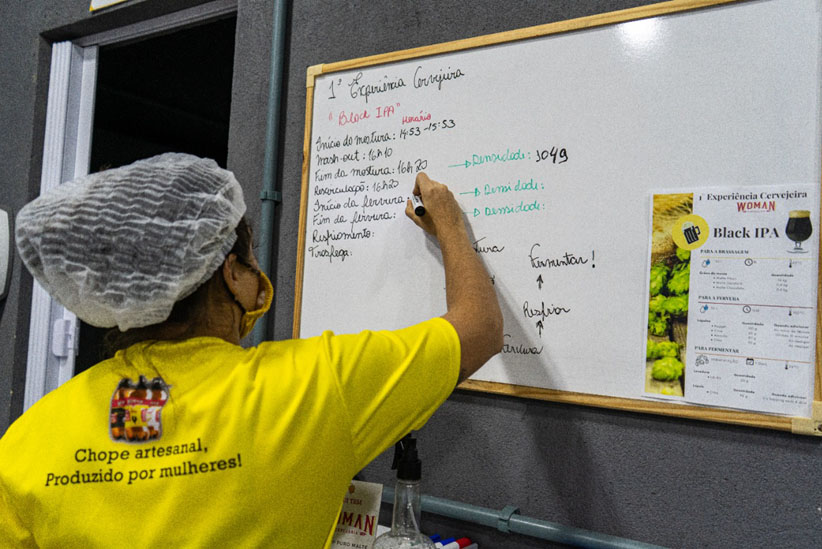 1ª Experiência Cervejeira
"Black IPA"
Horário
Início do mostura: 14:53 - 15:53
Mash-out: 16h10
Fim da mostura: 16h20 → Densidade: 1049
Recirculação: 16h20
Início da fervura: → Densidade:
Fim da fervura: → Densidade:
Resfriamento:
Trasfega:
Fermentar!
Resfriar
1ª Experiência Cervejeira
WOMAN
Black IPA
PARA A BRASSAGEM
PARA A FERVURA
PARA FERMENTAR
Chope artesanal,
Produzido por mulheres!
WOMAN
PURO MALTE